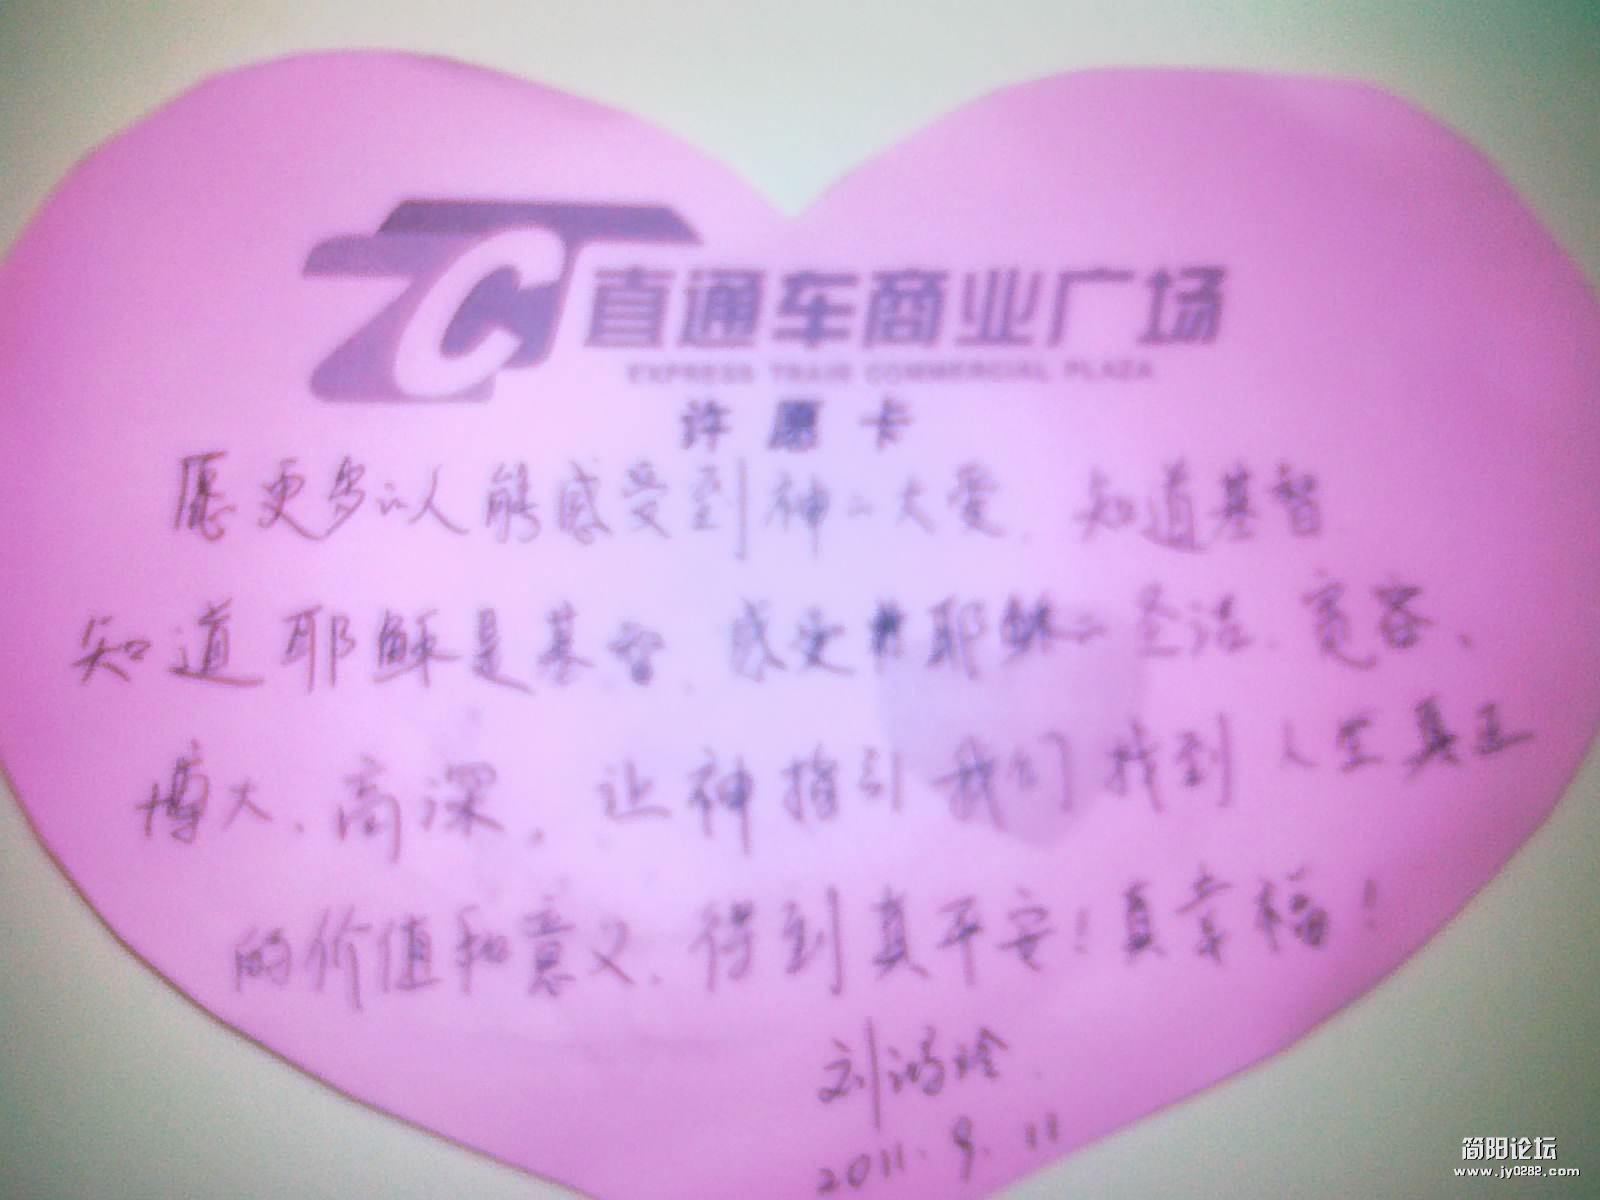 ZCT
直通车商业广场
EXPRESS TRAIN COMMERCIAL PLAZA
许愿卡
愿更多的人能感受到神的大爱,知道基督
知道耶稣是基督,感受耶稣的圣洁、宽容、
博大、高深,让神指引我们找到人生真正
的价值和意义,得到真平安!真幸福!
刘鸿
2011.9.11
简阳论坛
www.jy0282.com